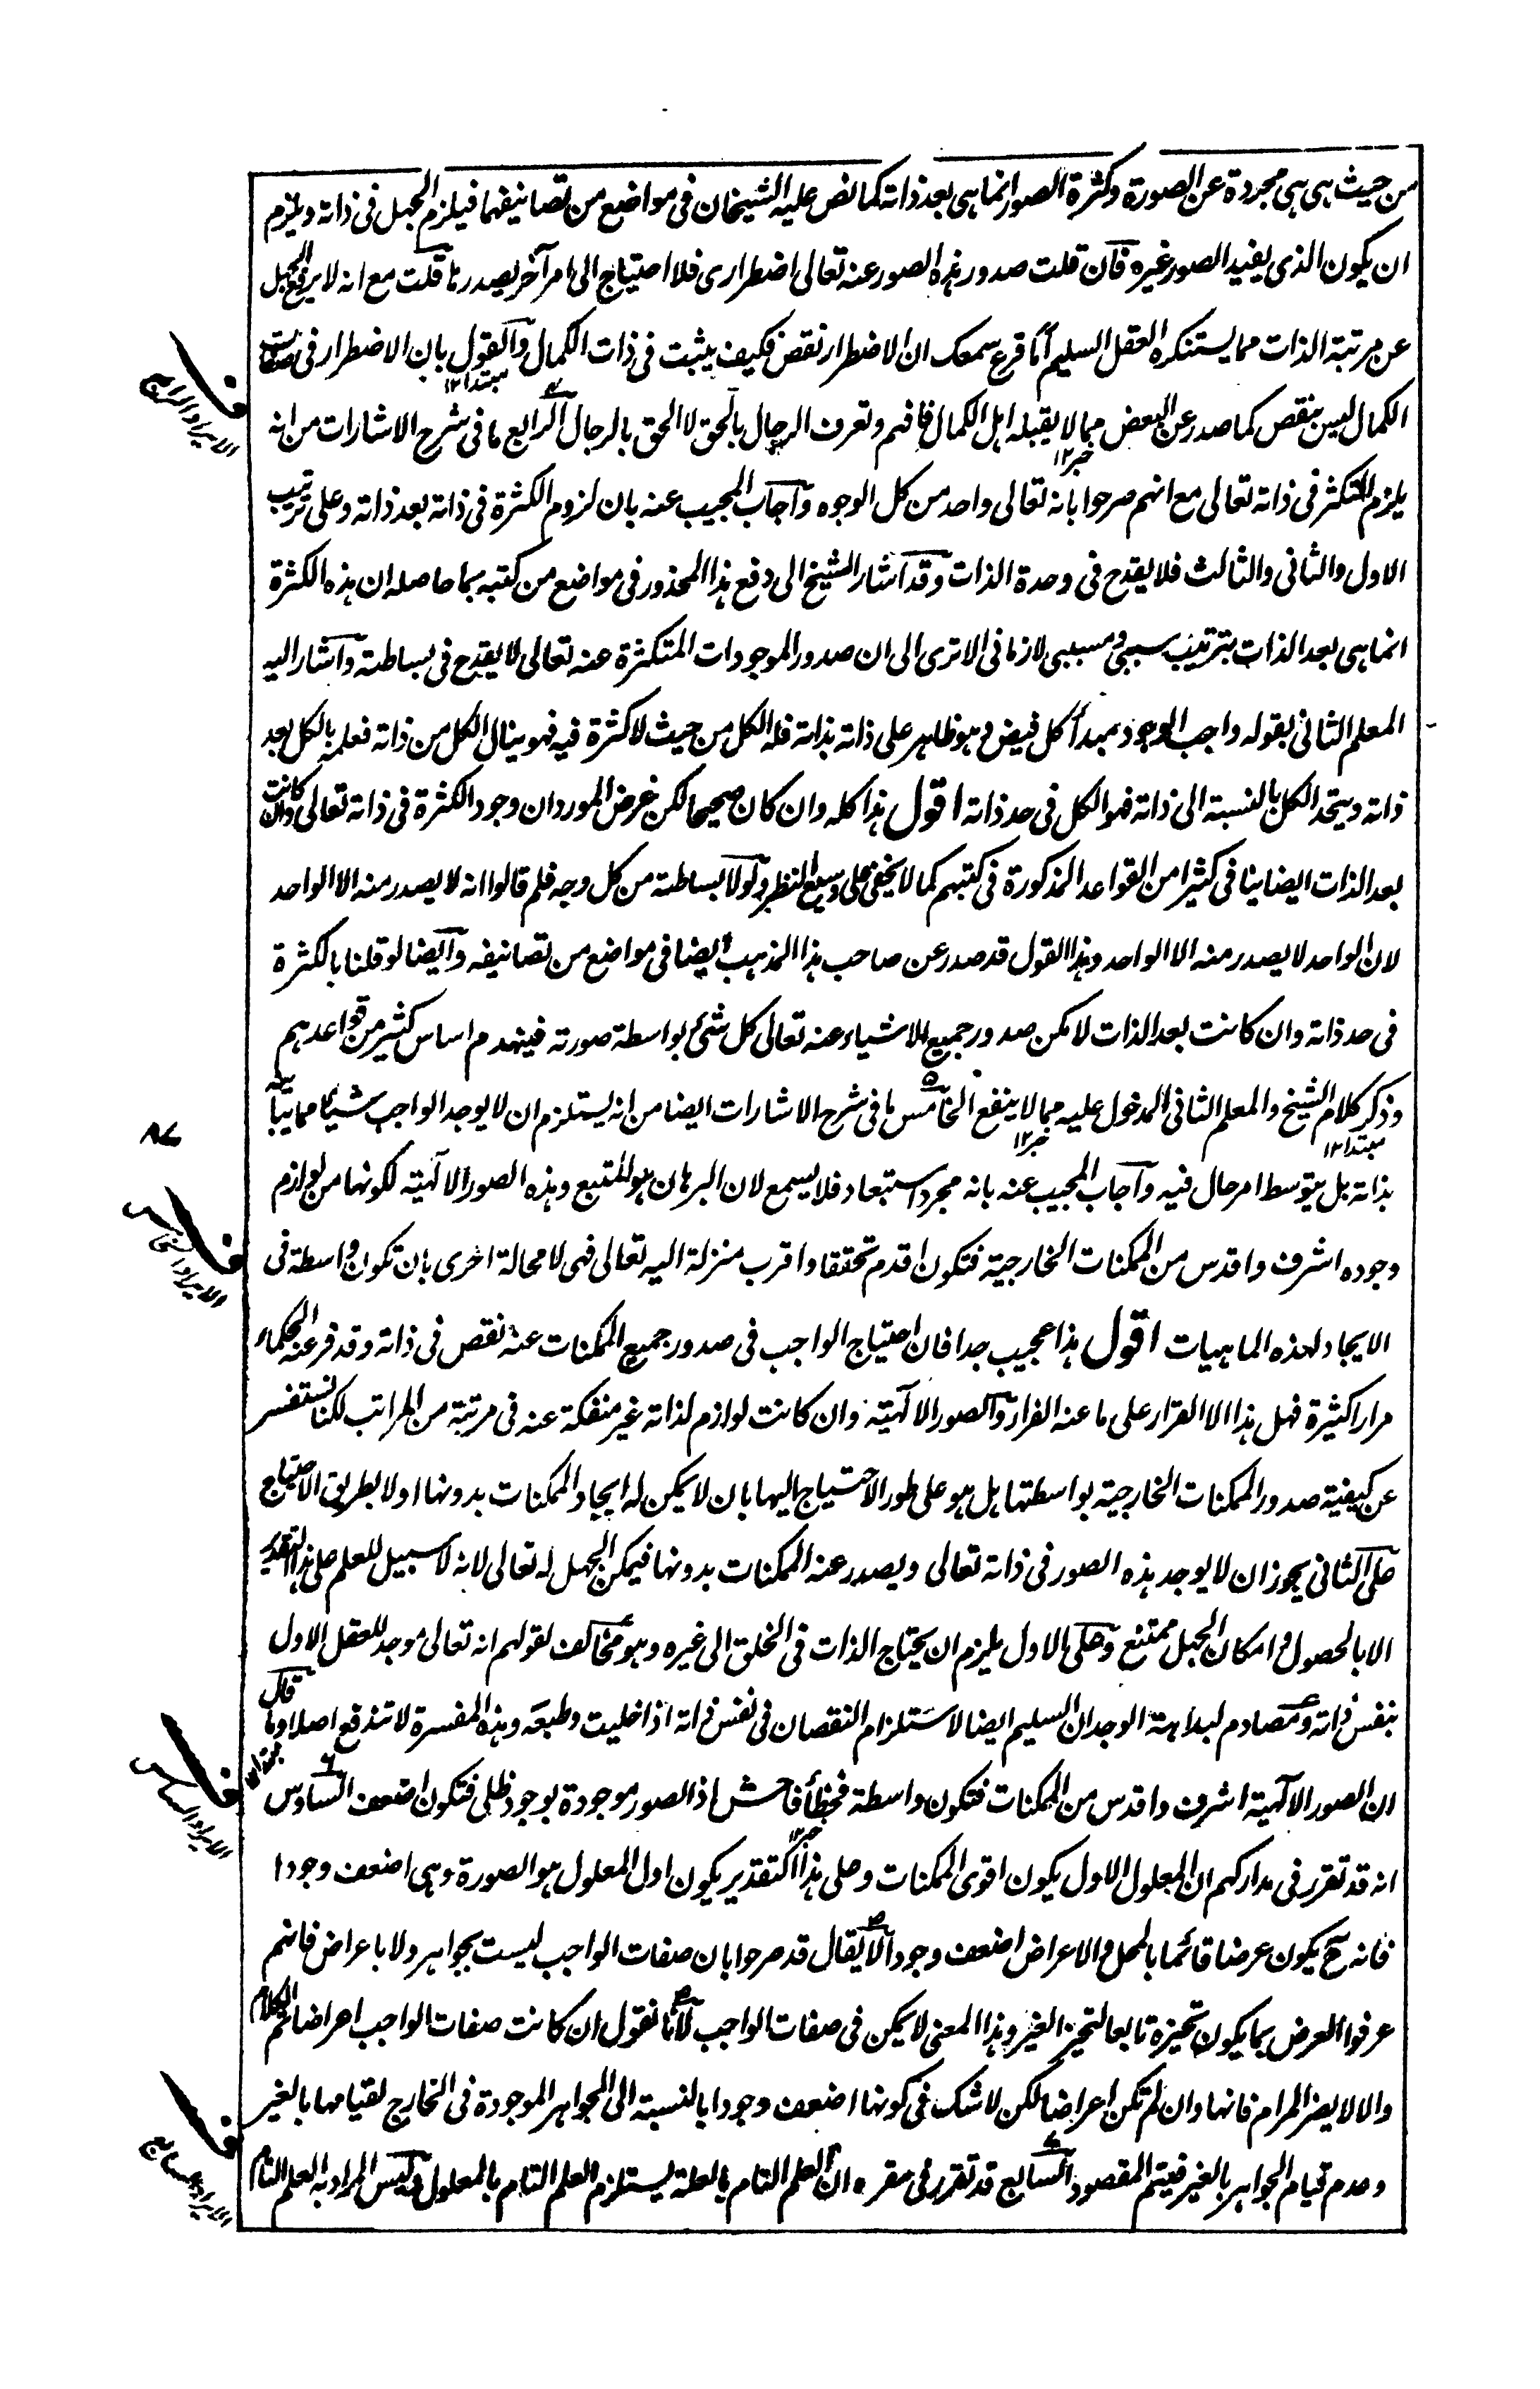 من حيث هى هى مجردة عن الصورة وكثرة الصور انما هى بعد ذاته كما نص عليه الشيخان فى مواضع من تصانيفهما فيلزم الجهل فى ذاته ويلزم
ان يكون الذى يفيد الصور غيره فان قلت صدور هذه الصور عنه تعالى اضطرارى فلا احتياج الى امر آخر يصدرها قلت مع انه لا يرفع الجهل
عن مرتبة الذات مما يستنكره العقل السليم أما قرع سمعك ان الاضطرار نقص فكيف يثبت فى ذات الكمال والقول بان الاضطرار فى صفات
مبتدا ١٢
الايراد الرابع
الكمال ليس بنقص كما صدر عن البعض مما لا يقبله اهل الكمال فافهم وتعرف الرجال بالحق لا الحق بالرجال الرابع ما فى شرح الاشارات من انه
خبر ١٢
يلزم التكثر فى ذاته تعالى مع انهم صرحوا بانه تعالى واحد من كل الوجوه وآجاب المجيب عنه بان لزوم الكثرة فى ذاته بعد ذاته وعلى ترتيب
الاول والثانى والثالث فلا يقدح فى وحدة الذات وقد اشار الشيخ الى دفع هذا المحذور فى مواضع من كتبه بما حاصله ان هذه الكثرة
انما هى بعد الذات بترتيب سببى ومسببى لازمانى الا ترى الى ان صدور الموجودات المتكثرة عنه تعالى لا يقدح فى بساطته واشار اليه
المعلم الثانى بقوله واجب الوجود مبدأ كل فيض وهو ظاهر على ذاته بذاته فله الكل من حيث لا كثرة فيه فهو ينال الكل من ذاته فعلمه بالكل بعد
ذاته ويتحد الكل بالنسبة الى ذاته فهو الكل فى حد ذاته اقول هذا كله وان كان صحيحا لكن غرض المورد ان وجود الكثرة فى ذاته تعالى وان كانت
بعد الذات ايضا ينافى كثيرا من القواعد المذكورة فى كتبهم كما لا يخفى على وسيع النظر ولولا بساطته من كل وجه فلم قالوا انه لا يصدر منه الا الواحد
لان الواحد لا يصدر منه الا الواحد وهذا القول قد صدر عن صاحب هذا المذهب ايضا فى مواضع من تصانيفه وآيضا لو قلنا بالكثرة
فى حد ذاته وان كانت بعد الذات لامكن صدور جميع الاشياء عنه تعالى كل شئ بواسطة صورته فينهدم اساس كثير من قواعدهم
وذكر كلام الشيخ والمعلم الثانى المدخول عليه مما لا ينفع الخامس ما فى شرح الاشارات ايضا من انه يستلزم ان لا يوجد الواجب شيئا مما يباينه
مبتدا ١٢
خبر ١٢
٨٧
بذاته بل بتوسط امر حال فيه وآجاب المجيب عنه بانه مجرد استبعاد فلا يسمع لان البرهان هو المتبع وهذه الصور الآلهية لكونها من لوازم
الايراد الخامس
وجوده اشرف واقدس من الممكنات الخارجية فتكون اقدم تحققا واقرب منزلة اليه تعالى فهى لا محالة احرى بان تكون واسطة فى
الايجاد لهذه الماهيات اقول هذا عجيب جدا فان احتياج الواجب فى صدور جميع الممكنات عنه نقص فى ذاته وقد فر عنه الحكماء
مرارا كثيرة فهل هذا الا القرار على ما عنه الفرار والصور الآلهية وان كانت لوازم لذاته غير منفكة عنه فى مرتبة من المراتب لكنا نستفسر
عن كيفية صدور الممكنات الخارجية بواسطتها هل هو على طور الاحتياج اليها بان لا يمكن له ايجاد الممكنات بدونها او لا بطريق الاحتياج
على الثانى يجوز ان لا يوجد هذه الصور فى ذاته تعالى ويصدر عنه الممكنات بدونها فيمكن الجهل له تعالى لانه لا سبيل للعلم على هذا التقدير
الا بالحصول وامكان الجهل ممتنع وعلى الاول يلزم ان يحتاج الذات فى الخلق الى غيره وهو مخالف لقولهم انه تعالى موجد للعقل الاول
بنفس ذاته ومصادم لبداهة الوجدان السليم ايضا لاستلزام النقصان فى نفس ذاته اذا خليت وطبعه وهذه المفسرة لا تندفع اصلا وما قال
ان الصور الآلهية اشرف واقدس من الممكنات فتكون واسطة فخطأ فاحش اذ الصور موجودة بوجود ظلى فتكون اضعف السادس
مبتدا ١٢
الايراد السادس
خبر ١٢
انه قد تقرر فى مداركهم ان المعلول الاول يكون اقوى الممكنات وعلى هذا التقدير يكون اول المعلول هو الصورة وهى اضعف وجودا
فانه ح يكون عرضا قائما بالمحل والاعراض اضعف وجودا لا يقال قد صرحوا بان صفات الواجب ليست بجواهر ولا باعراض فانهم
عرفوا العرض بما يكون تحيزه تابعا لتحيز الغير وهذا المعنى لا يمكن فى صفات الواجب لانا نقول ان كانت صفات الواجب اعراضا تم الكلام
والا لا يضر المرام فانها وان لم تكن اعراضا لكن لا شك فى كونها اضعف وجودا بالنسبة الى الجواهر الموجودة فى الخارج لقيامها بالغير
الايراد السابع
وعدم قيام الجواهر بالغير فيتم المقصود السابع قد تقرر فى مقره ان العلم التام بالعلة يستلزم العلم التام بالمعلول وليس المراد به العلم التام